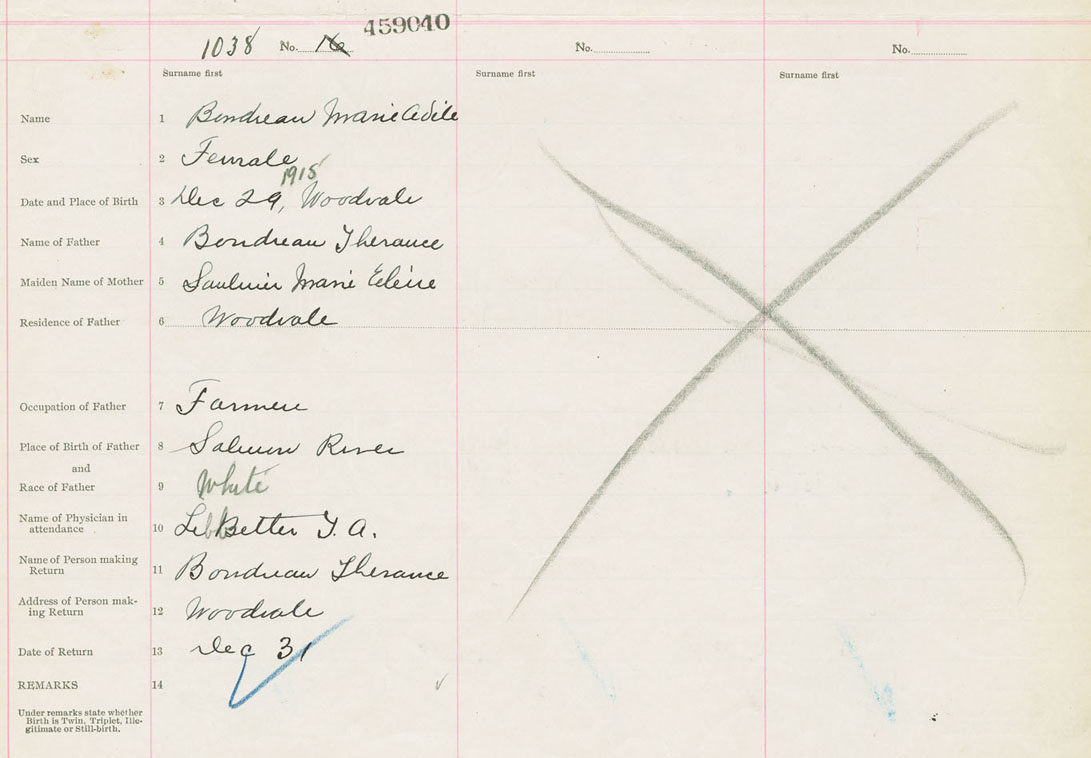 459040
1038 No. 16 No. No.
Surname first Surname first Surname first
Name 1 Bondreau Marie Adele
Sex 2 Female
1915
Date and Place of Birth 3 Dec 29, Woodvale
Name of Father 4 Bondreau Therance
Maiden Name of Mother 5 Saulnier Marie
Residence of Father 6 Woodvale
Occupation of Father 7 Farmer
Place of Birth of Father 8 Salmon River
and
Race of Father 9 White
Name of Physician in
attendance 10 Better T. A.
Name of Person making
Return 11 Bondreau Therance
Address of Person mak-
ing Return 12 Woodvale
Date of Return 13 Dec 31
REMARKS 14
Under remarks state whether
Birth is Twin, Triplet, Ille-
gitimate or Still-birth.